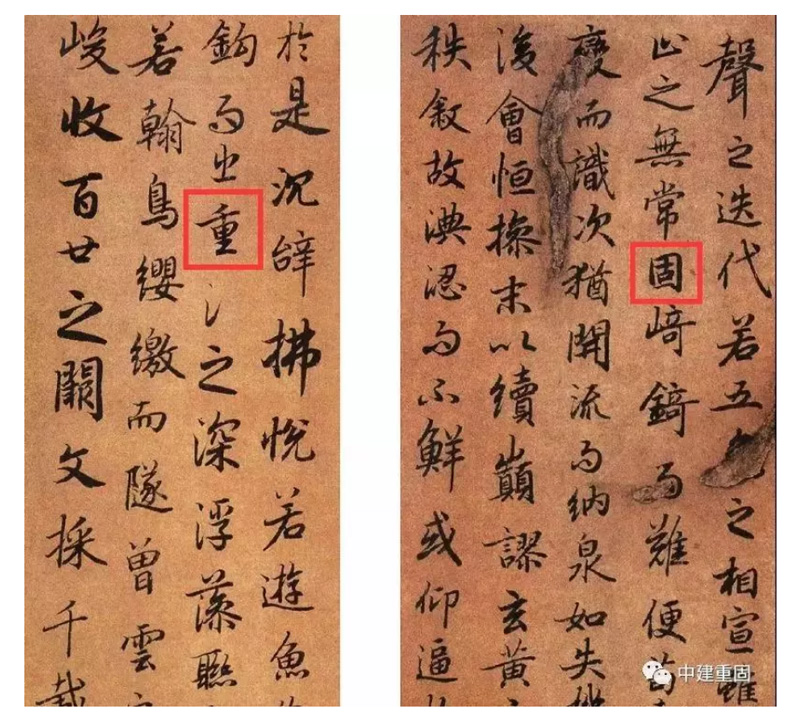 於是沉辭拂悅若遊魚
鈎而出重之深浮藻聯
若翰鳥纓繳而隧曾雲
峻收百廿之闕文採千載
聲之迭代若五色之相宣雖
止之無常固崎錡而難便苟
變而識次猶開流而納泉如失機
後會恒操末以續顛謬玄黃
秩敘故淟涊而不鮮或仰逼
中建重固